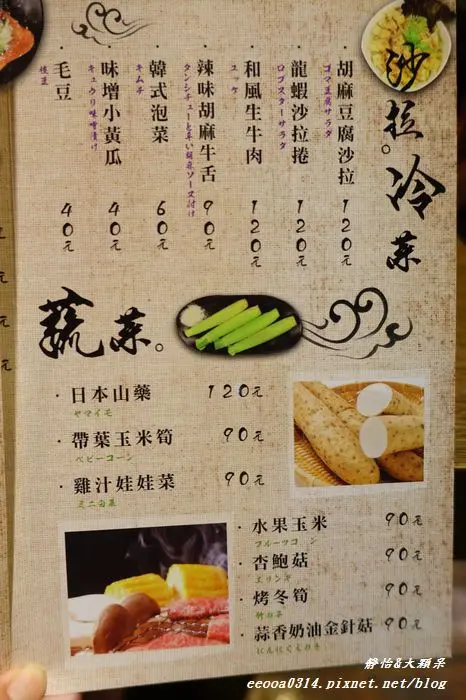 沙拉。冷菜
胡麻豆腐沙拉 120元
ゴマ豆腐サラダ
龍蝦沙拉捲 120元
ロブスターサラダ
和風生牛肉 120元
ユッケ
辣味胡麻牛舌 90元
タンシチューと辛い胡麻ソース討け
韓式泡菜 60元
キムチ
味增小黃瓜 40元
キュウリ味噌漬け
毛豆 40元
枝豆
蔬菜。
日本山藥 120元
ヤマイモ
帶葉玉米筍 90元
ベビーコーン
雞汁娃娃菜 90元
ミニ白菜
水果玉米 90元
フルーツコーン
杏鮑菇 90元
エリンギ
烤冬筍 90元
蒜香奶油金針菇 90元
靜怡&大顆呆
eeooa0314.pixnet.net/blog